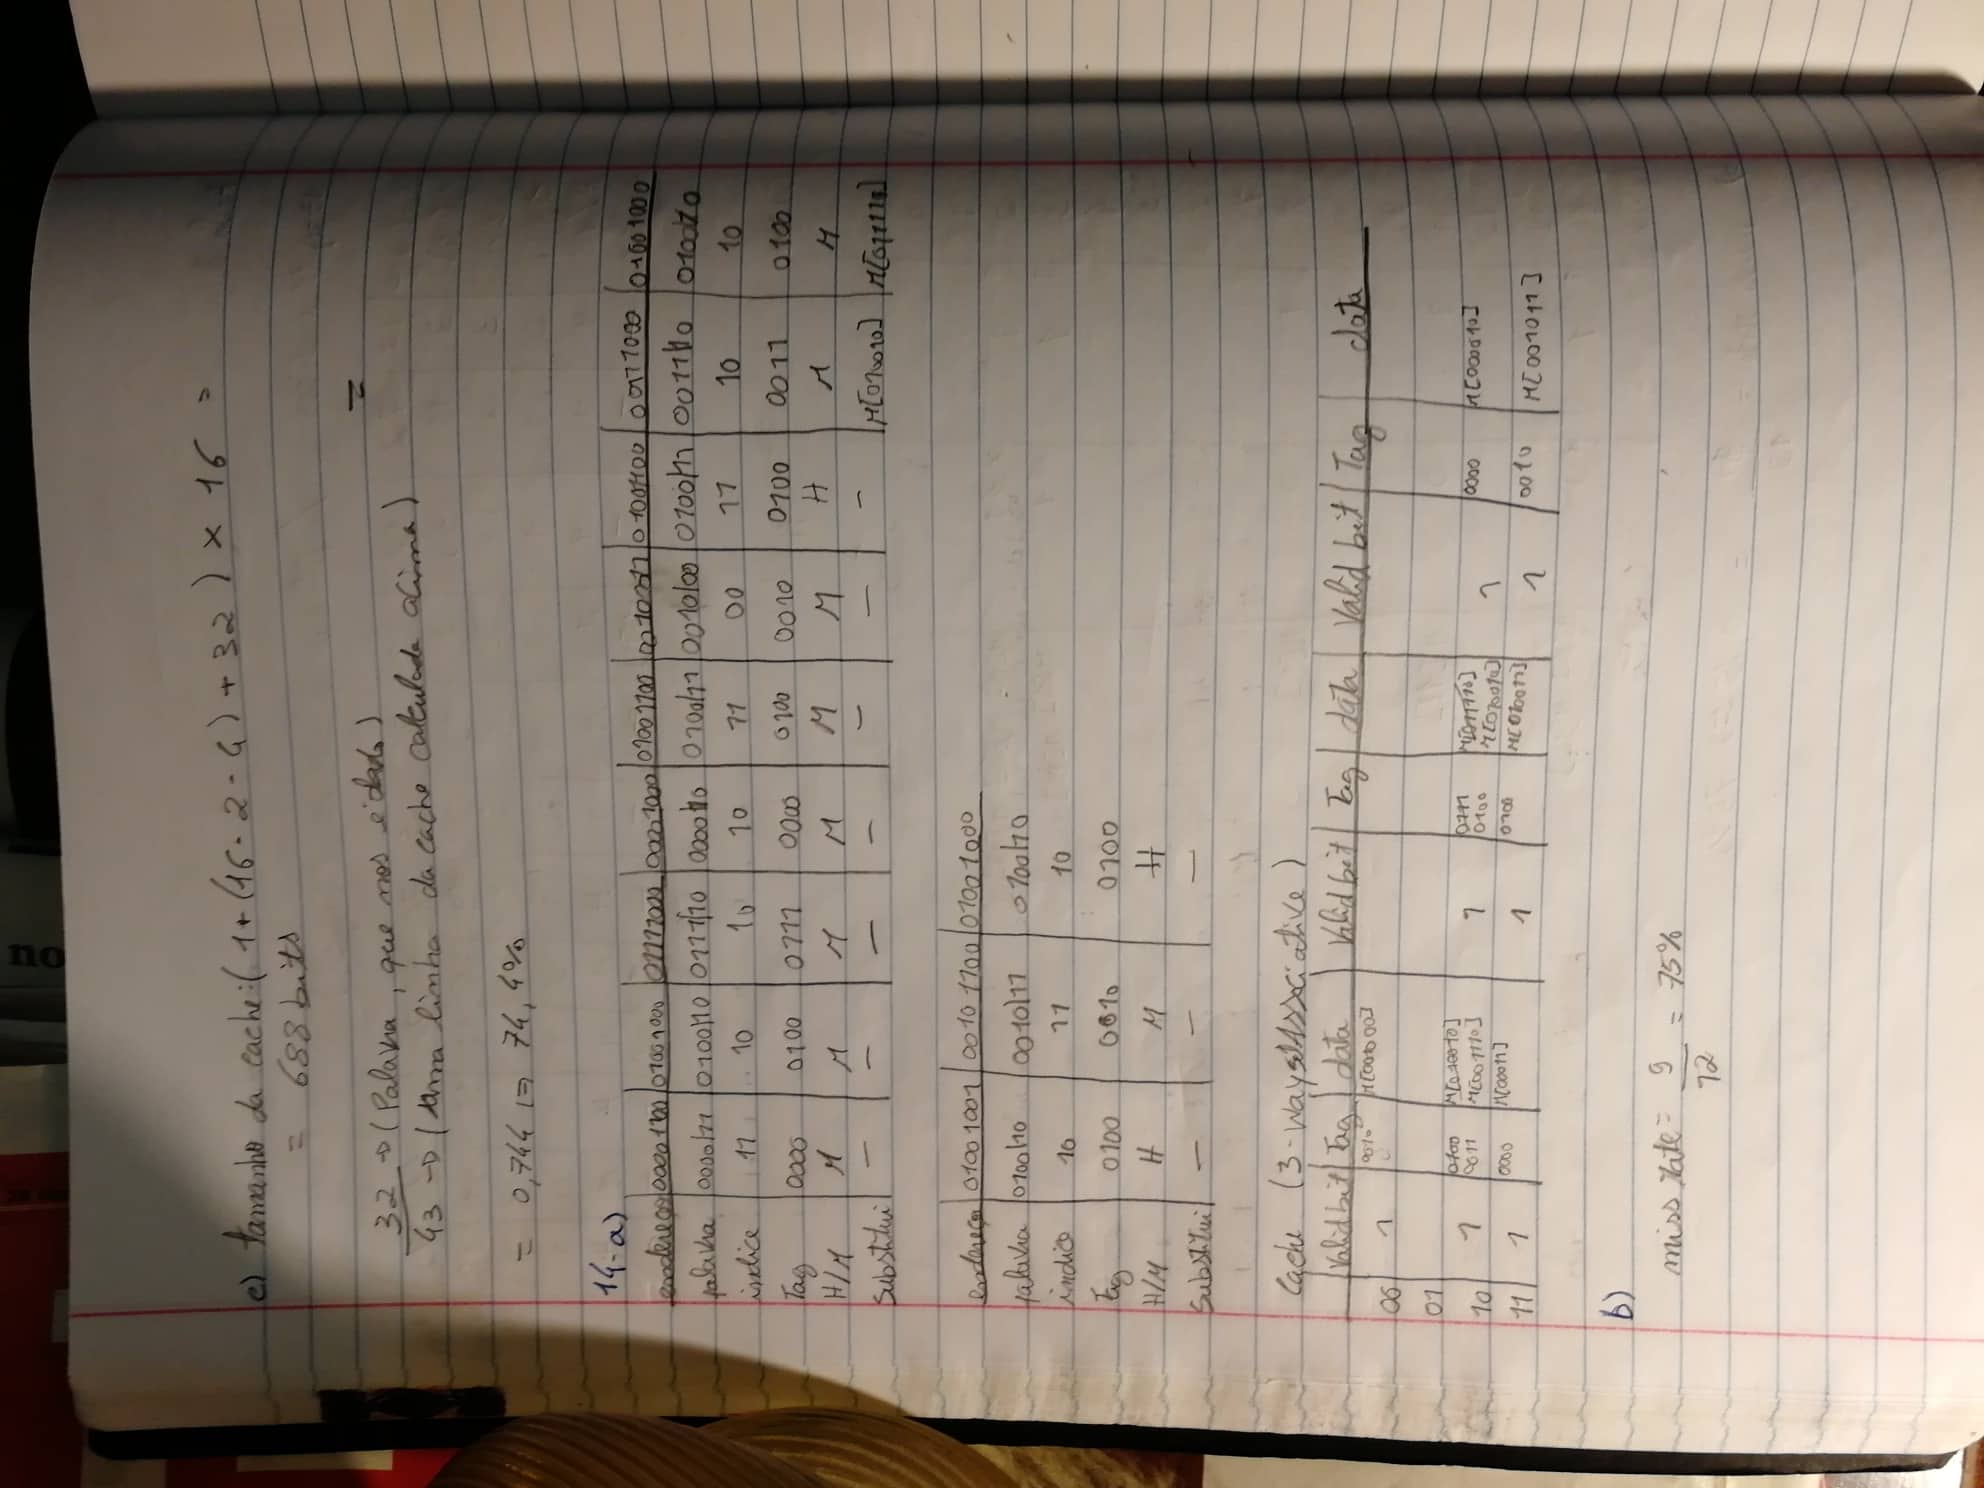 e) tamanho da cache: (1+(16-2-4)+32) × 16 =
= 688 bits
32 → (Palavra, que nos é dada)
43 → (uma linha da cache calculada acima)
=
= 0,744 => 74,4%
14-a)
endereço 00001100 01001000 01111000 00001000 01001100 00101 01001100 00111000 01001000
palavra 0000|11 0100|10 0111|10 0000|10 0100|11 0010|00 0100|11 0011|10 0100|10
indice 11 10 10 10 11 00 11 10 10
Tag 0000 0100 0111 0000 0100 0010 0100 0011 0100
H/M M M M M M M H M M
Substitui — — — — — — — M[010010] M[011110]
endereço 01001001 00101100 01001000
palavra 0100|10 0010|11 0100|10
indice 10 11 10
Tag 0100 0010 0100
H/M H M H
Substitui — — —
Cache (3-way associative)
Valid bit Tag data Valid bit Tag data Valid bit Tag data
00 1 0010 M[001000]
01
10 1 0100 M[010010] 1 0111 M[011110] 1 0000 M[000010]
0011 M[001110] 0100 M[010010]
11 1 0000 M[000011] 1 0100 M[010011] 1 0010 M[001011]
b)
miss rate = 9 = 75%
12
no